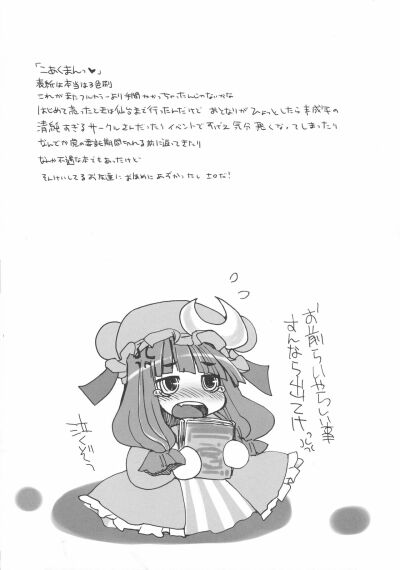 「こあくまんっ♥」
表紙は本当は3色刷
これがまたフルカラーより手間かかっちゃったんじゃないかな
はじめて売ったときは仙台まで行ったんだけど おとなりがひょっとしたら未成年の
清純すぎるサークルさんだったりイベントですげえ気分悪くなってしまったり
なんでか虎の委託期間切れる前に返ってきたり
なんか不遇な本でもあったけど
そんけいしてるお友達にお褒めにあずかったしまんぞくだ!
お前らいやらしい事
すんなら出てけっ
泣くぞっ